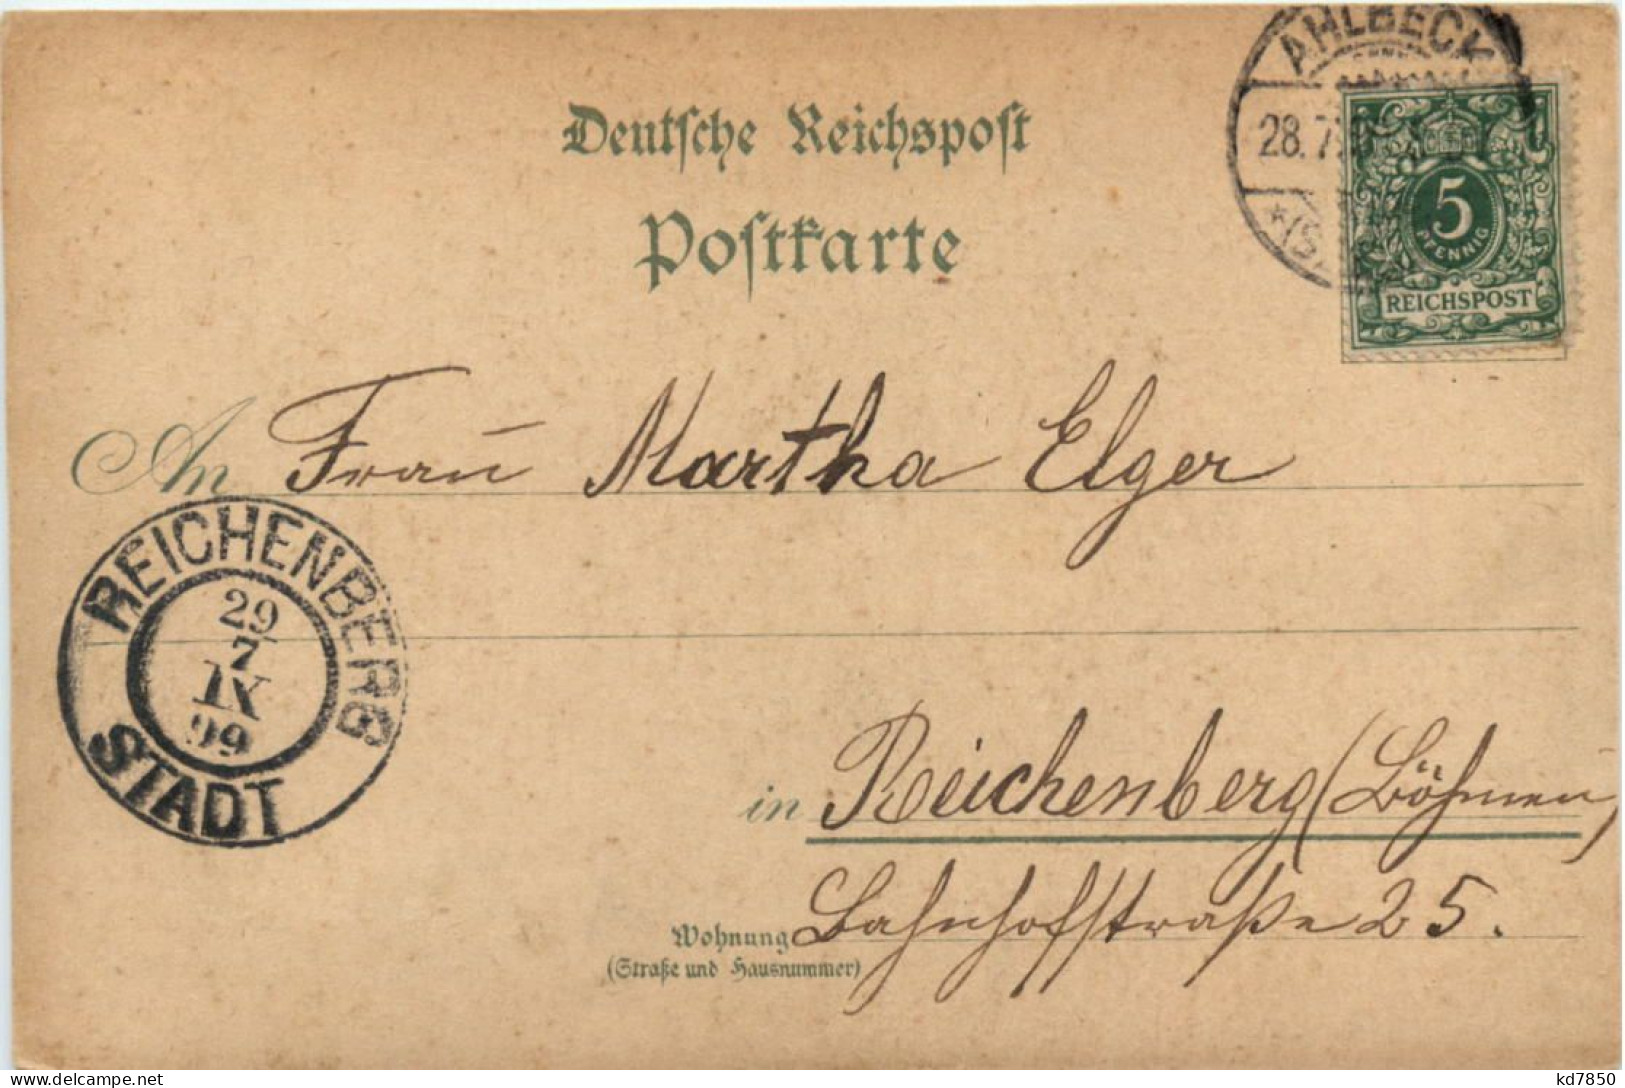 AHLBECK
28.7.
*(S
5
PFENNIG
REICHSPOST
Deutsche Reichspost
Postkarte
An Frau Martha Elger
REICHENBERG
29
7
IX
99
STADT
in Reichenberg (Böhmen)
Wohnung Bahnhofstraße 25.
(Straße und Hausnummer)
kd7850